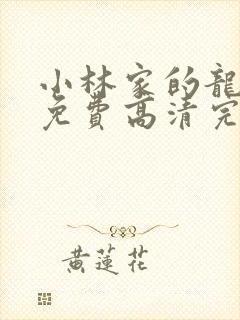 小林家的龍
免費高清完
黃蓮花